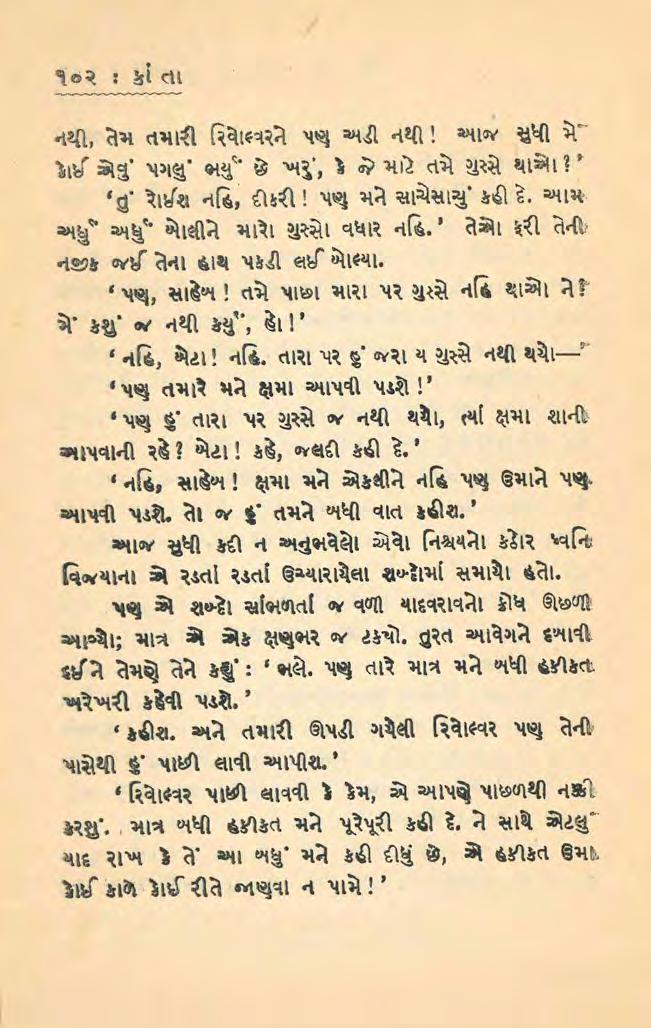 ૧૦૨ : કાંતા
નથી, તેમ તમારી રિવોલ્વરને પણ અડી નથી! આજ સુધી મેં
કોઈ એવું પગલું ભર્યું છે ખરું, કે જે માટે તમે ગુસ્સે થાઓ?’
‘તું રોઈશ નહિ, દીકરી! પણ મને સાચેસાચું કહી દે. આમ
અધું અધું બોલીને મારો ગુસ્સો વધાર નહિ.’ તેઓ ફરી તેની
નજીક જઈ તેના હાથ પકડી લઈ બોલ્યા.
‘પણ, સાહેબ! તમે પાછા મારા પર ગુસ્સે નહિ થાઓ ને?
મેં કશું જ નથી કર્યું, હો!’
‘નહિ, બેટા! નહિ. તારા પર હું જરા ય ગુસ્સે નથી થયો—’
‘પણ તમારે મને ક્ષમા આપવી પડશે!’
‘પણ હું તારા પર ગુસ્સે જ નથી થયો, ત્યાં ક્ષમા શાની
આપવાની રહે? બેટા! કહે, જલદી કહી દે.’
‘નહિ, સાહેબ! ક્ષમા મને એકલીને નહિ પણ ઉમાને પણ
આપવી પડશે. તો જ હું તમને બધી વાત કહીશ.’
આજ સુધી કદી ન અનુભવેલો એવો નિશ્ચયનો કઠોર ધ્વનિ
વિજયાના એ રડતાં રડતાં ઉચ્ચારાયેલા શબ્દોમાં સમાયો હતો.
પણ એ શબ્દો સાંભળતાં જ વળી યાદવરાવનો ક્રોધ ઊછળી
આવ્યો; માત્ર એ એક ક્ષણભર જ ટક્યો. તુરત આવેગને દબાવી
દઈને તેમણે તેને કહ્યું : ‘ભલે. પણ તારે માત્ર મને બધી હકીકત
ખરેખરી કહેવી પડશે.’
‘કહીશ. અને તમારી ઊપડી ગયેલી રિવોલ્વર પણ તેની
પાસેથી હું પાછી લાવી આપીશ.’
‘રિવોલ્વર પાછી લાવવી કે કેમ, એ આપણે પાછળથી નક્કી
કરશું. માત્ર બધી હકીકત મને પૂરેપૂરી કહી દે. ને સાથે એટલું
યાદ રાખ કે તેં આ બધું મને કહી દીધું છે, એ હકીકત ઉમા
કોઈ કાળે કોઈ રીતે જાણવા ન પામે!’